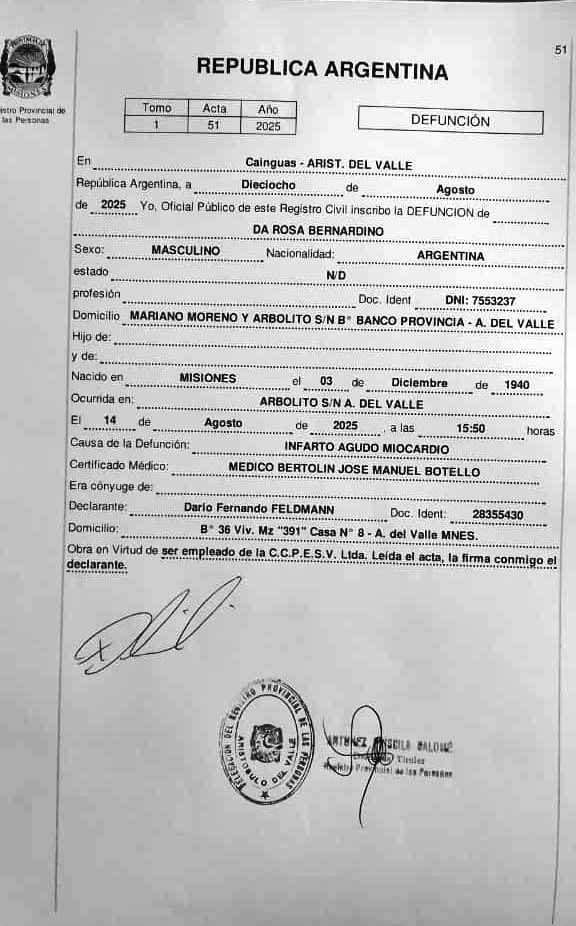 51
REPUBLICA ARGENTINA
PROVINCIA DE
MISIONES
istro Provincial de
las Personas
Tomo Acta Año
1 51 2025
DEFUNCIÓN
En Cainguas - ARIST. DEL VALLE
República Argentina, a Dieciocho de Agosto
de 2025 Yo, Oficial Público de este Registro Civil inscribo la DEFUNCION de
DA ROSA BERNARDINO
Sexo: MASCULINO Nacionalidad: ARGENTINA
estado N/D
profesión Doc. Ident DNI: 7553237
Domicilio MARIANO MORENO Y ARBOLITO S/N B° BANCO PROVINCIA - A. DEL VALLE
Hijo de:
y de:
Nacido en MISIONES el 03 de Diciembre de 1940
Ocurrida en: ARBOLITO S/N A. DEL VALLE
El 14 de Agosto de 2025 , a las 15:50 horas
Causa de la Defunción: INFARTO AGUDO MIOCARDIO
Certificado Médico: MEDICO BERTOLIN JOSE MANUEL BOTELLO
Era cónyuge de:
Declarante: Dario Fernando FELDMANN Doc. Ident: 28355430
Domicilio: B° 36 Viv. Mz "391" Casa N° 8 - A. del Valle MNES.
Obra en Virtud de ser empleado de la C.C.P.E.S.V. Ltda. Leída el acta, la firma conmigo el
declarante.
DELEGACION DEL REGISTRO PROVINCIAL DE LAS PERSONAS
ARISTOBULO DEL VALLE
Titular
Registro Provincial de las Personas